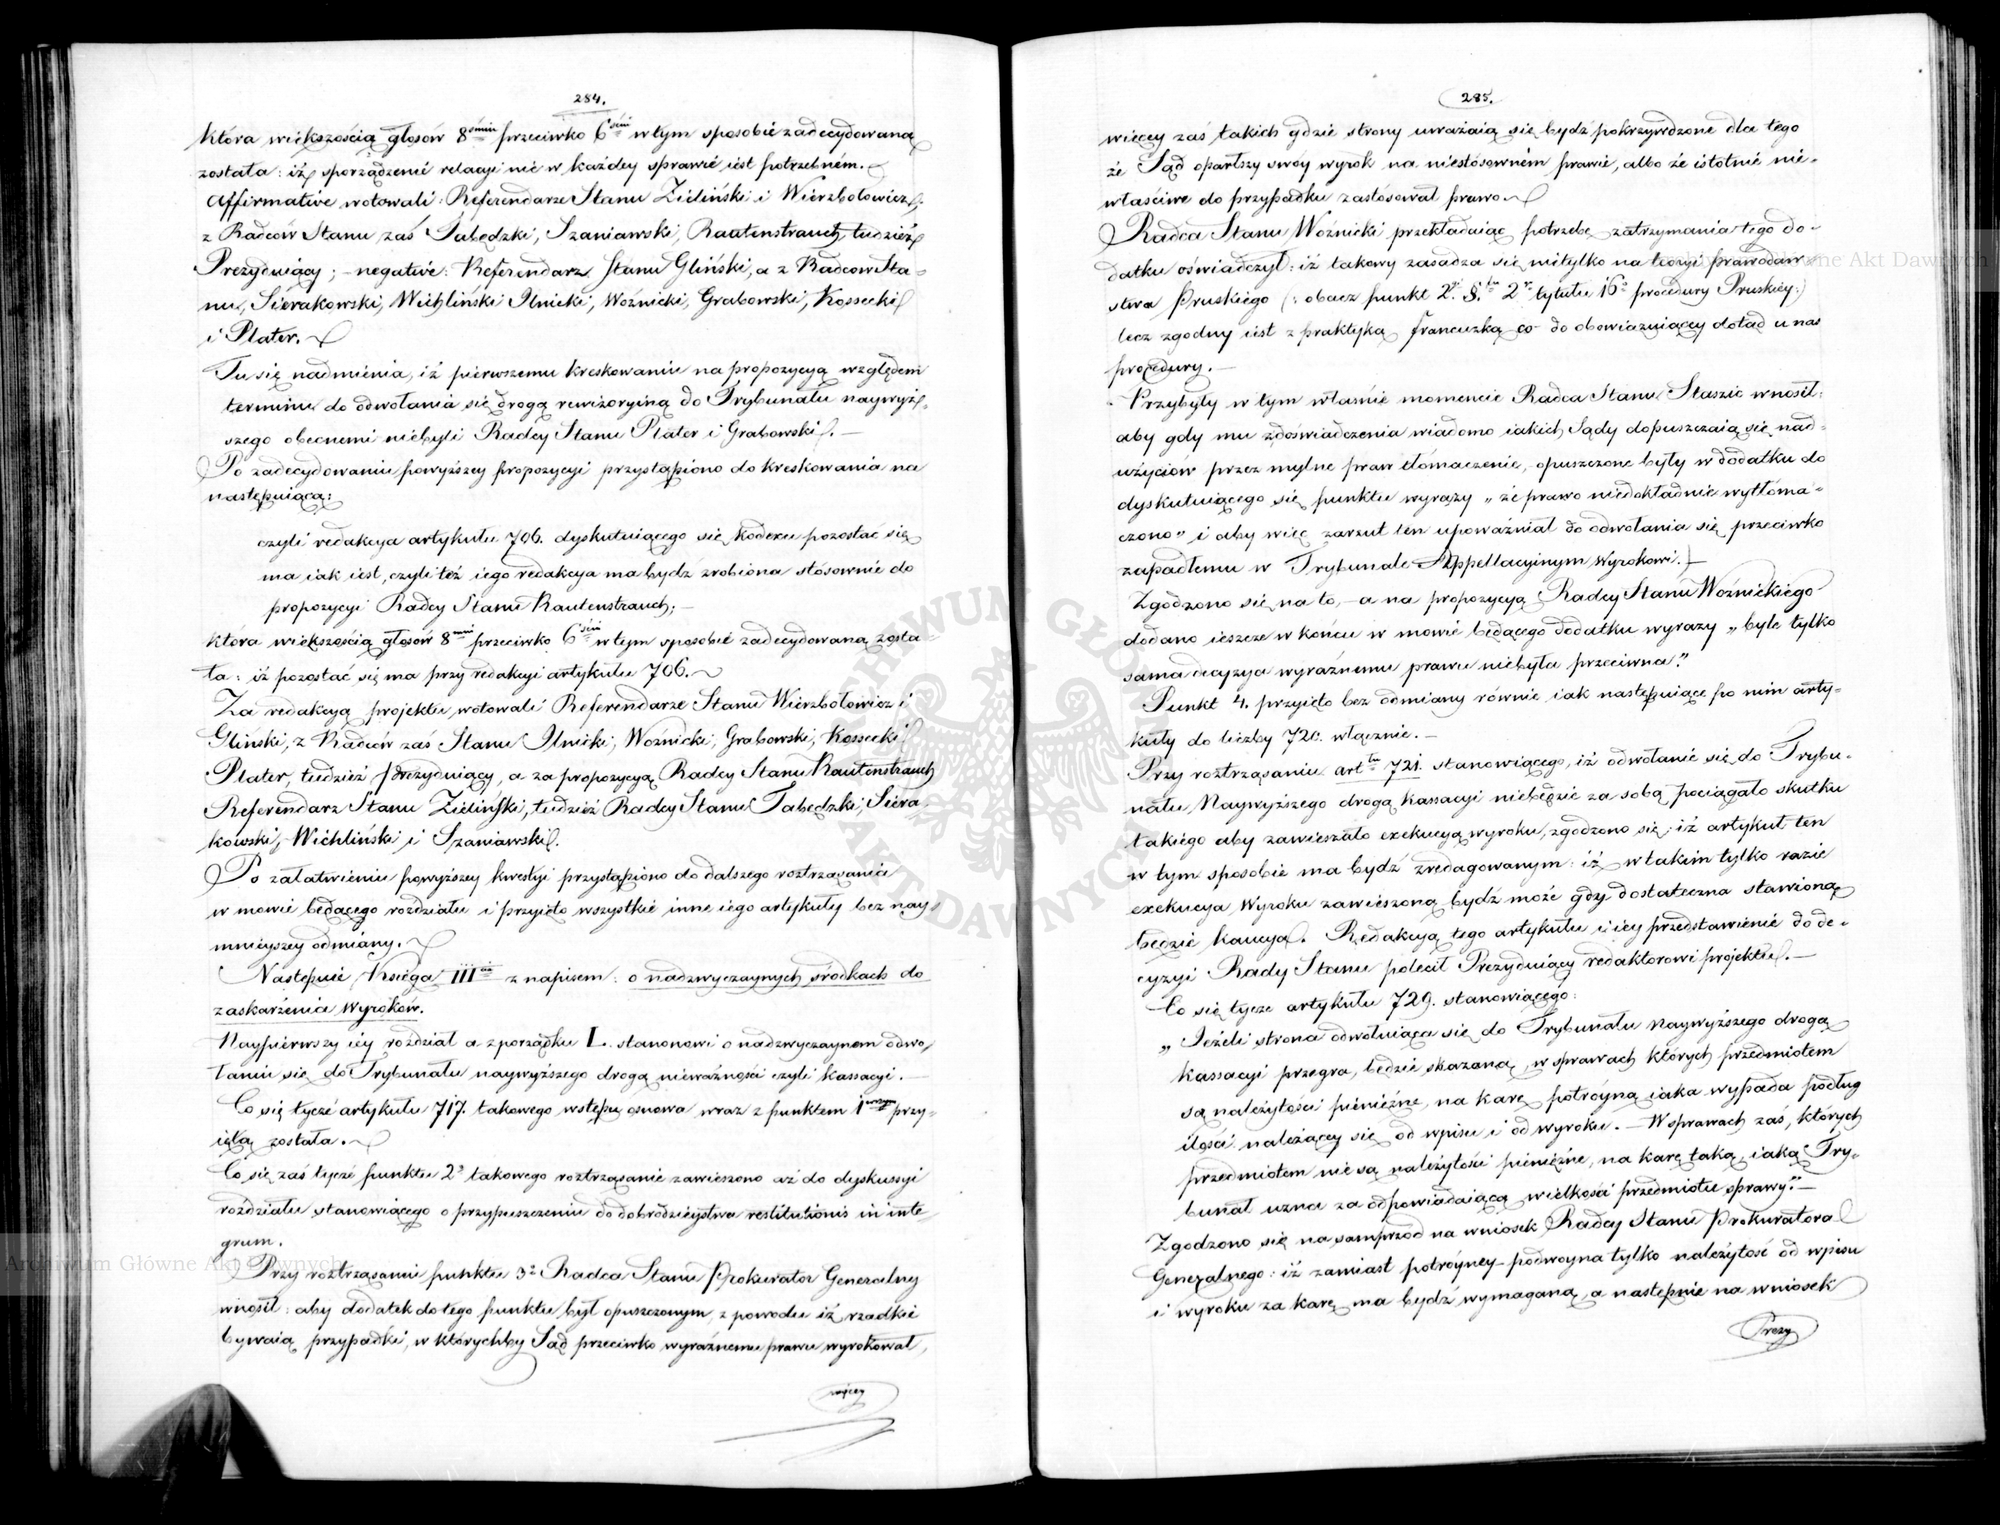 284.
która większością głosów 8śmiu przeciwko 6ściu w tym sposobie zadecydowaną
została: iż sporządzenie relacyi nie w każdey sprawie iest potrzebném.
Affirmative wotowali: Referendarze Stanu Zieliński i Wierzbołowicz,
z Radców Stanu zaś Tabędzki, Szaniawski, Rautenstrauch, tudzież
Prezyduiący; – negative: Referendarz Stanu Gliński, a z Radców Sta-
nu, Sierakowski, Wichliński, Ilnicki, Woźnicki, Grabowski, Kossecki
i Plater.
Tu się nadmienia, iż pierwszemu kreskowaniu na propozycyą względem
terminu do odwołania się drogą rewizoryiną do Trybunału naywyż-
szego obecnemi niebyli Radcy Stanu Plater i Grabowski. –
Po zadecydowaniu powyższey propozycyi przystąpiono do kreskowania na
następuiącą:
czyli redakcya artykułu 706. dyskutuiącego się kodexu pozostać się
ma iak iest, czyli też iego redakcya ma bydz zrobiona stósownie do
propozycyi Radcy Stanu Rautenstrauch; –
która większością głosów 8miu przeciwko 6ściu w tym sposobie zadecydowaną zosta-
ła: iż pozostać się ma przy redakcyi artykułu 706.
Za redakcyą projektu wotowali Referendarze Stanu Wierzbołowicz i
Gliński, z Radców zaś Stanu Ilnicki, Woźnicki, Grabowski, Kossecki
Plater, tudzież Prezyduiący, a za propozycyą Radcy Stanu Rautenstrauch
Referendarz Stanu Zieliński, tudzież Radcy Stanu Tabędzki, Siera-
kowski, Wichliński i Szaniawski.
Po załatwieniu powyższey kwestyi przystąpiono do dalszego roztrząsania
w mowie będącego rozdziału i przyięto wszystkie inne iego artykuły bez nay-
mnieyszey odmiany.
Następuie Księga IIIcia z napisem: o nadzwyczaynych śrzodkach do
zaskarżenia Wyroków.
Naypierwszy iéy rozdział a z porządku L. stanonowi o nadzwyczaynem odwo-
łaniu się do Trybunału naywyższego drogą nieważności czyli kassacyi. –
Co się tycze artykułu 717. takowego wstępu osnowa wraz z punktem 1wszym przy-
iętą została.
Co się zaś tycze punktu 2o takowego roztrząsanie zawieszono aż do dyskussyi
rozdziału stanowiącego o przypuszczeniu do dobrodzieystwa restitutionis in inte-
grum.
Przy roztrząsaniu punktu 3o Radca Stanu Prokurator Generalny
wnosił: aby dodatek do tego punktu był opuszczonym, z powodu iż rzadkie
bywaią przypadki, w którychby Sąd przeciwko wyraźnemu prawu wyrokował,
więcey
285.
więcey zaś takich gdzie strony uważaią się bydź pokrzywdzone dla tego
że Sąd oparłszy swóy wyrok na niestósowném prawie, albo że istotnie nie-
właściwe do przypadku zastósował prawo.
Radca Stanu Woźnicki przekładaiąc potrzebę zatrzymania tego do-
datku oświadczył: iż takowy zasadza się nietylko na teoryi prawodaw-
stwa Pruskiego (: obacz punkt 2. §. 2 tytułu 16o procedury Pruskiéy:)
lecz zgodny iest z praktyką francuzką co do obowiązuiącey dotąd u nas
procedury. –
Przybyły w tym właśnie momencie Radca Stanu Staszic wnosił:
aby gdy mu z doświadczenia wiadomo iakich Sądy dopuszczaią się nad-
użyciów przez mylne praw tłómaczenie, opuszczone były w dodatku do
dyskutuiącego się punktu wyrazy „że prawo niedokładnie wytłóma-
czono” i aby więc zarzut ten upoważniał do odwołania się przeciwko
zapadłemu w Trybunale Appellacyinym Wyrokowi. –
Zgodzono się na to, – a na propozycyą Radcy Stanu Woźnickiego
dodano ieszcze w końcu w mowie będącego dodatku wyrazy „byle tylko
sama decyzya wyraźnemu prawu niebyła przeciwna.”
Punkt 4. przyięto bez odmiany równie iak następuiące po nim arty-
kuły do liczby 720. włącznie. –
Przy roztrząsaniu artłu 721. stanowiącego, iż odwołanie się do Trybu-
nału Naywyższego drogą kassacyi niebędzie za sobą pociągało skutku
takiego aby zawieszało exekucyą wyroku, zgodzono się: iż artykuł ten
w tym sposobie ma bydź zredagowanym: iż w takim tylko razie
exekucya Wyroku zawieszoną bydź może gdy dostateczna stawioną
będzie kaucya. Redakcyą tego artykułu i iey przedstawienie do de-
cyzyi Rady Stanu polecił Prezyduiący redaktorowi projektu. –
Co się tycze artykułu 729. stanowiącego:
„Jeżeli strona odwołuiąca się do Trybunału Naywyższego drogą
kassacyi przegra, będzie skazaną, w sprawach których przedmiotem
są należytości pieniężne, na karę potróyną iaka wypada podług
ilości należącey się od wpisu i od wyroku. – W sprawach zaś, których
przedmiotem nie są należytości pieniężne, na karę taką, iaką Try-
bunał uzna za odpowiadaiącą wielkości przedmiotu sprawy.” –
Zgodzono się nasamprzód na wniosek Radcy Stanu Prokuratora
Generalnego: iż zamiast potróyney podwoyna tylko należytość od wpisu
i wyroku za karę ma bydź wymaganą, a następnie na wniosek
Prezy
Archiwum Główne Akt Dawnych
ARCHIWUM GŁÓWNE AKT DAWNYCH